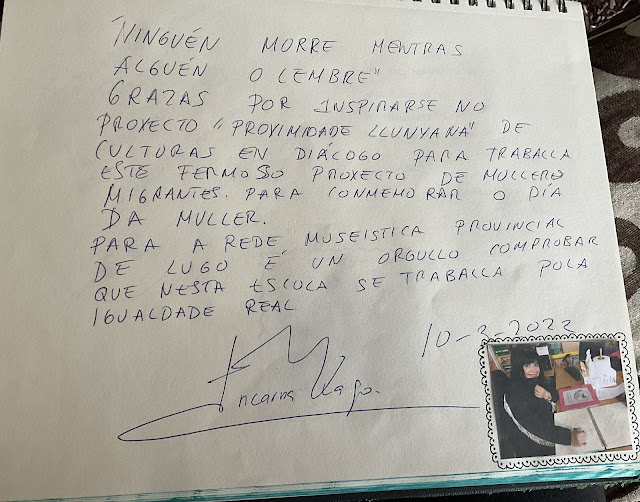 "NINGUÉN MORRE MENTRAS
ALGUÉN O LEMBRE"
GRAZAS POR INSPIRARSE NO
PROXECTO "PROXIMIDADE LLUNYANA" DE
CULTURAS EN DIÁLOGO PARA TRABALLA
ESTE FERMOSO PROXECTO DE MULLERES
MIGRANTES. PARA CONMEMORAR O DÍA
DA MULLER.
PARA A REDE MUSEISTICA PROVINCIAL
DE LUGO É UN ORGULLO COMPROBAR
QUE NESTA ESCOLA SE TRABALLA POLA
IGUALDADE REAL
10-3-2022
Encarna Lago